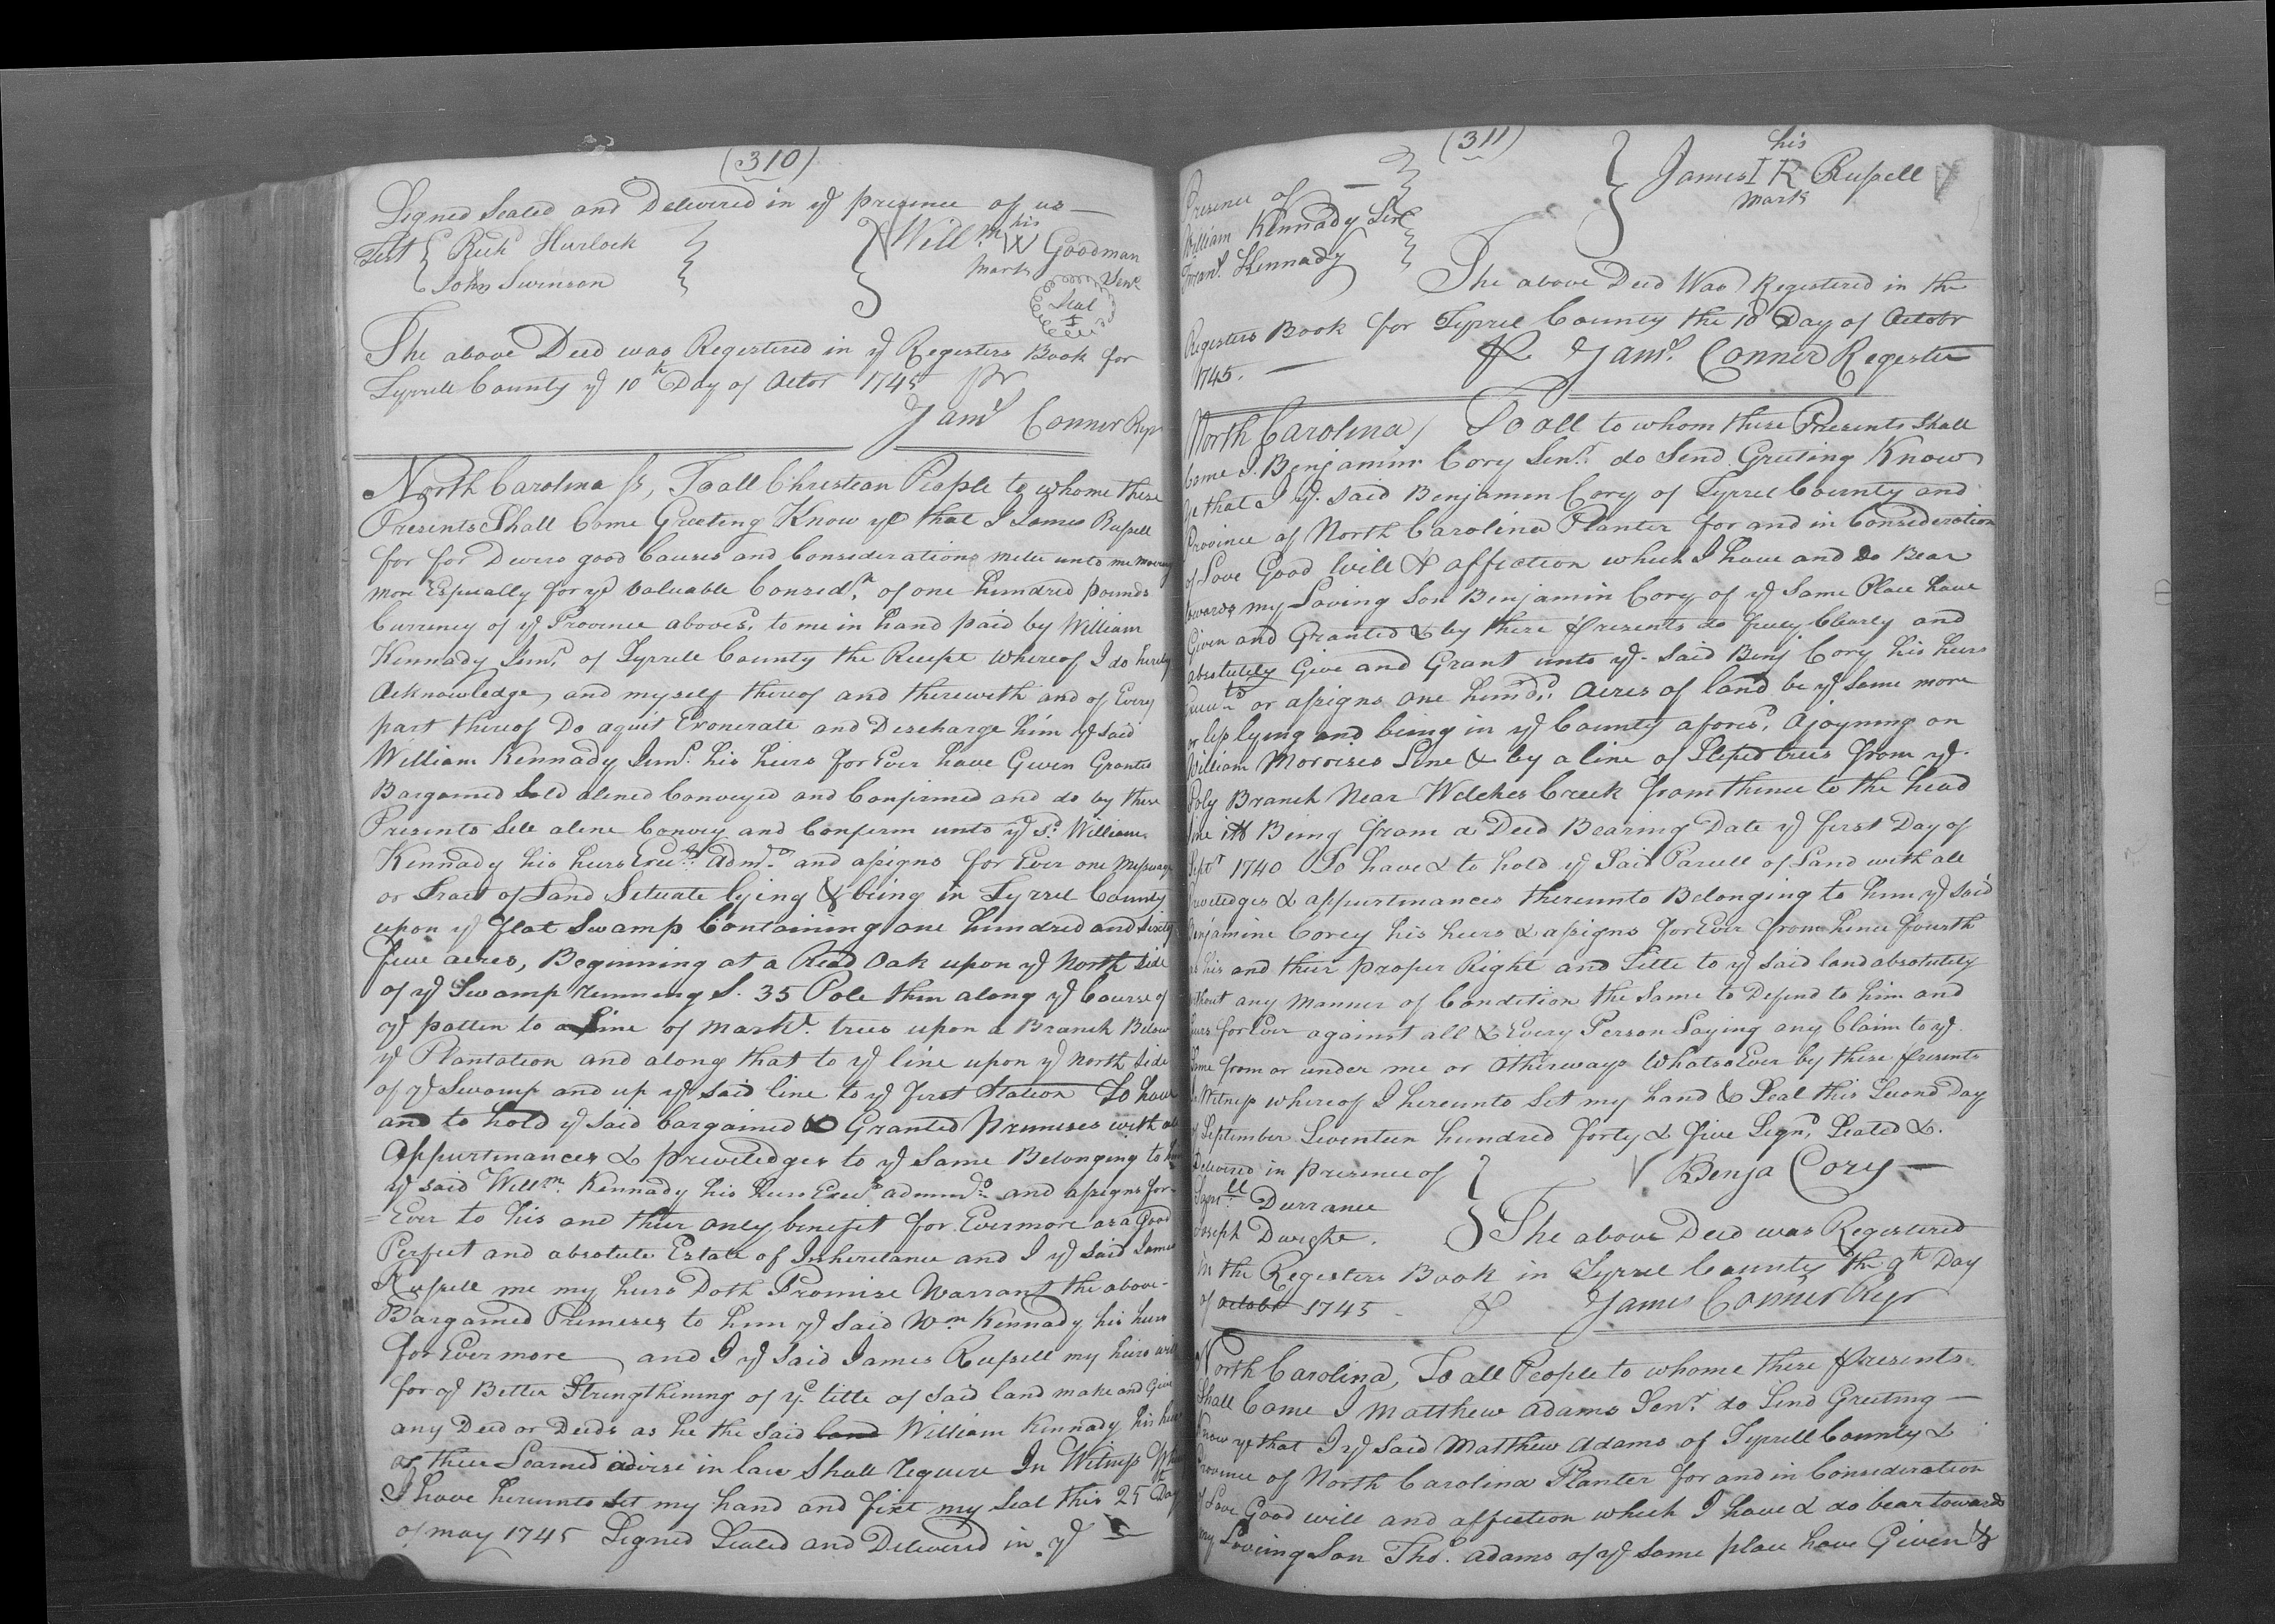 (310)
Signed Sealed and Delivered in ye presence of us
Test Richd Hurlock
John Swinson
Willm his W Goodman
mark Senr
Seal
The above Deed was Regestered in ye Regesters Book for
Tyrrell County ye 10th Day of Octor 1745 pr
Jams Conner Regr
North Carolina ss, To all Christian People to whome these
Presents Shall Come Greeting Know ye that I James Russell
for for Divers good Causes and Considerations me unto me moving
more Espesually for ye valuable Considn. of one hundred pounds
Currency of ye Province aboves, to me in hand paid by William
Kennady Junr. of Tyrrell County the Recept whereof I do hereby
Acknowledge, and myself thereof and therewith and of Every
part thereof Do aquit Exonerate and Discharge him ye said
William Kennady Junr. his heirs for Ever have Given Granted
Bargained Sold alened Conveyed and Confirmed and do by these
Presents Sell alene Convey and Confirm unto ye sd. William
Kennady his heirs Execrs. Admrs. and assigns for Ever one Messuage
or Tract of Land Situate lying & being in Tyrrel County
upon ye flat Swamp Containing one hundred and Sixty
five acres, Beginning at a Read Oak upon ye North Side
of ye Swamp running S. 35 Pole then along ye Course of
ye patten to a Line of markd. trees upon a Branch Below
ye Plantation and along that to ye line upon ye North Side
of ye Swamp and up ye said line to ye first Station To have
and to hold ye said bargained & Granted Premises with all
Appurtinances & priviledges to ye Same Belonging to him
ye said Willm. Kennady his heirs Execrs adminrs and assigns for
= Ever to his and their only benefit for Evermore as a Good
Perfect and absolute Estate of Inheritance and I ye Said James
Russell me my heirs Doth Promise Warrant the above-
Bargained Premeses to him ye said Wm Kennady his heirs
for Evermore and I ye Said James Russell my heirs will
for ye Better Strengthining of ye title of said land make and Give
any Deed or Deeds as he the said land William Kennady his heirs
or their Learned advise in law Shall require In Witness Whereof
I have hereunto Set my hand and fixt my Seal this 25th Day
of may 1745 Signed Sealed and Delivered in ye
(311)
Presence of
William Kennady Senr
Frans. Kennady
his
James I R Russell
mark
The above Deed Was Regestered in the
Regesters Book for Tyrrel County the 10 Day of Octobr
1745. Pr Jams. Conner Regester
North Carolina / To all to whom these Presents Shall
Come I. Benjamin Cory Senr. do Send Greeting Know
ye that I ye. said Benjamin Cory of Tyrrel County and
Province of North Carolina Planter for and in Consideration
of Love Good Will & affection which I have and do Bear
towards my Loving Son Benjamin Cory of ye Same Place have
Given and Granted & by these presents do freely Clearly and
absolutely Give and Grant unto ye. said Benj Cory his heirs
Execrs or assigns one hundd. acres of land be ye same more
or less lying and being in ye County aforesd. Ajoyning on
William Morrises Line & by a line of Sliped trees from ye.
Poly Branch Near Welches Creek from thence to the head
line it Being from a Deed Bearing Date ye first Day of
Septr 1740 To have & to hold ye Said Parcell of Land with all
Priviledges & appurtinances thereunto Belonging to him ye said
Benjamine Corey his heirs & assigns for Ever from hence fourth
as his and their proper Right and Title to ye said land absolutely
without any manner of Condition the Same to Defend to him and
heirs for Ever against all & Every Person Laying any Claim to ye
Same from or under me or otherways Whatsoever by these presents
In Witness whereof I hereunto Set my hand & Seal this Second Day
of September Seventeen hundred forty & five Signd. Sealed &.
Delivered in presence of
Samll Durrance
Joseph Dwight.
Benja Cory
The above Deed was Regestered
in the Regesters Book in Tyrrel County the 9th Day
of Octobr 1745 Pr James Conner Regr
North Carolina, To all People to whome these presents
Shall Come I Matthew Adams Senr. do Send Greeting
Know ye that I ye said Matthew Adams of Tyrrell County &
Province of North Carolina Planter for and in Consideration
of Love Good will and affection which I have & do bear towards
my Loveing Son Thos. Adams of ye same place have Given &